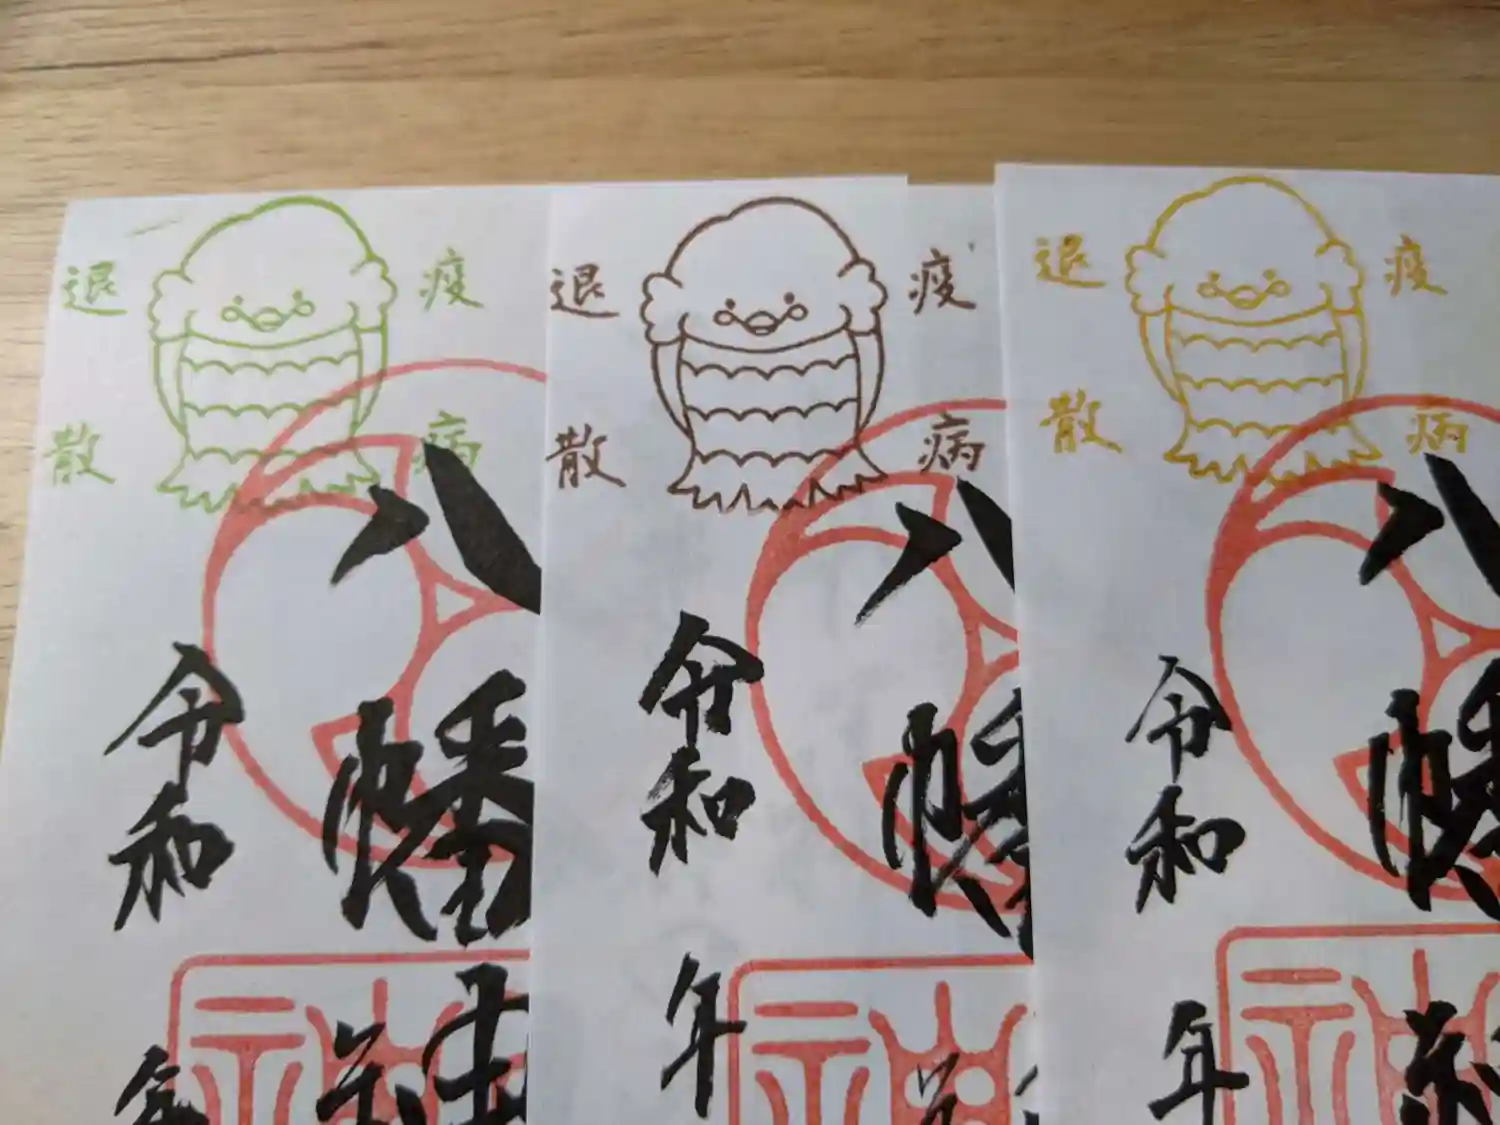 疫病
退散
八幡
令和
年
疫病
退散
八幡
令和
年
疫病
退散
八幡
令和
年